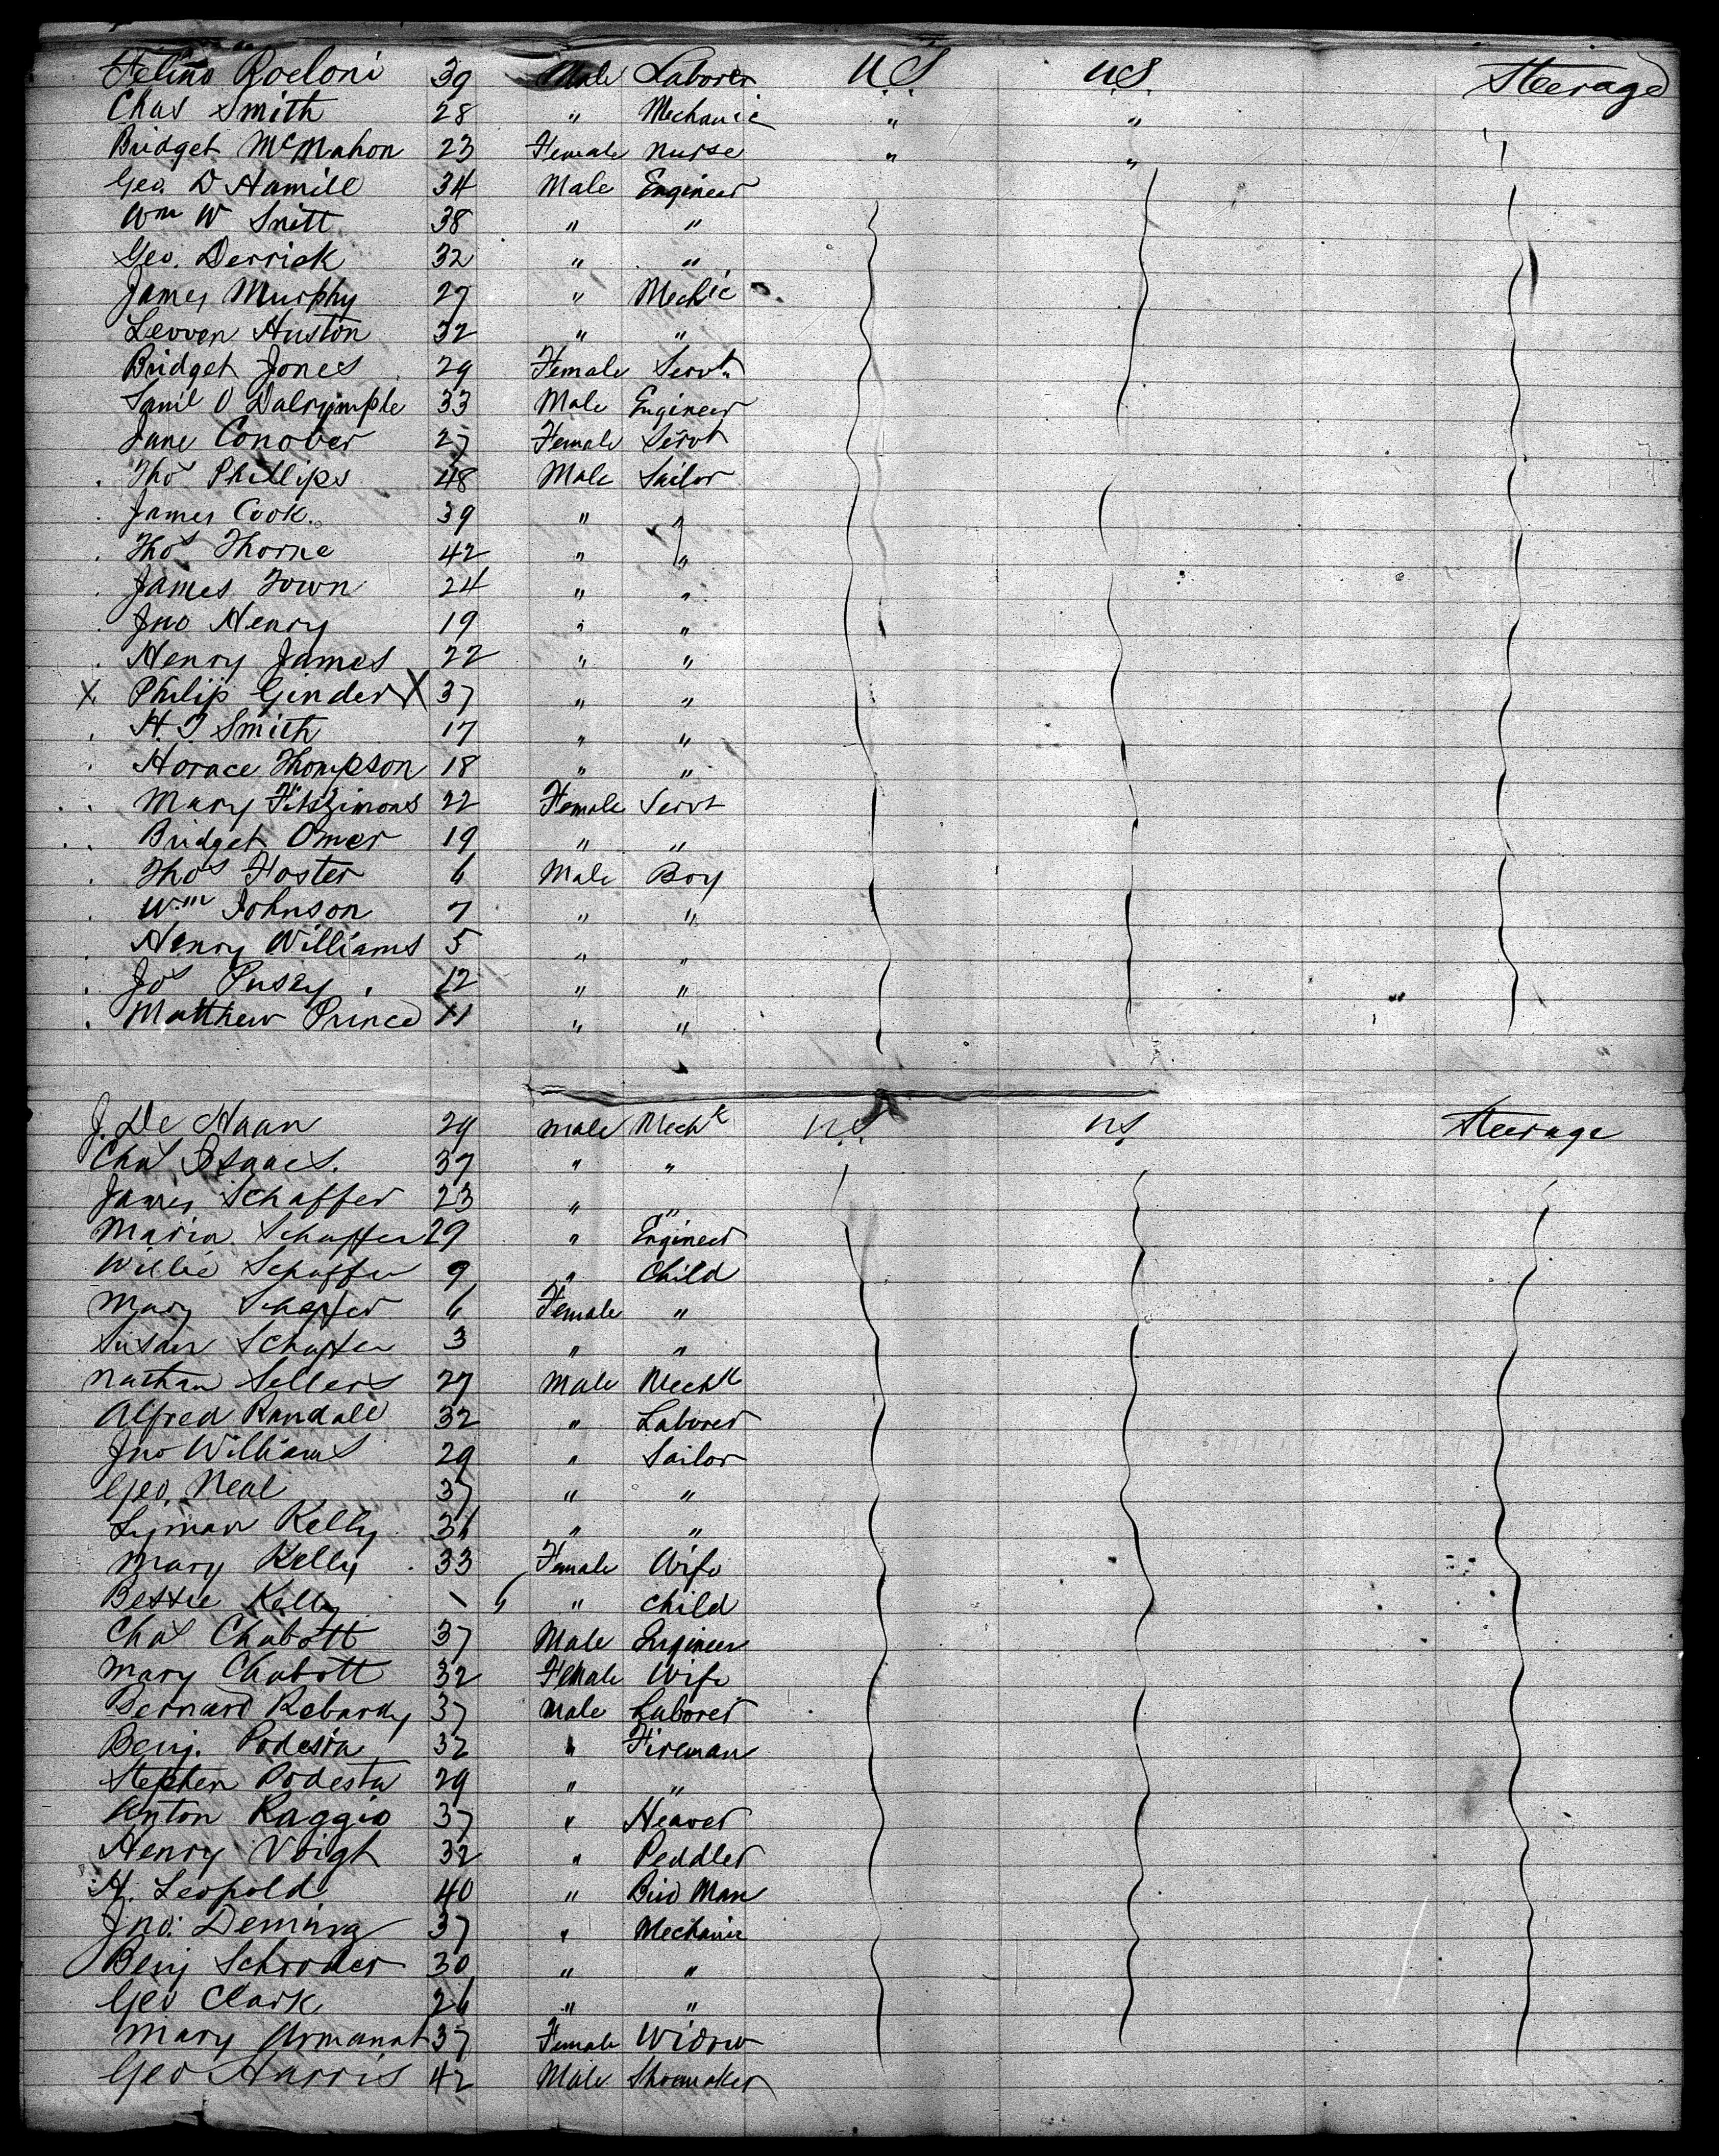 Felino Roeloni 39 Male Laborer U.S. U.S. Steerage
Chas Smith 28 " Mechanic " "
Bridget McMahon 23 Female Nurse " "
Geo. D Hamill 34 Male Engineer
Wm W Snitt 38 " "
Geo. Derrick 32 " "
James Murphy 27 " Mechic
Levven Huston 32 " "
Bridget Jones 29 Female Servt
Saml O Dalrymple 33 Male Engineer
Jane Conover 27 Female Servt
Thos Phillips 48 Male Sailor
James Cook 39 " "
Thos Thorne 42 " "
James Town 24 " "
Jno Henry 19 " "
Henry James 22 " "
X Philip Ginder X 37 " "
H. T Smith 17 " "
Horace Thompson 18 " "
Mary Fitszimons 22 Female Servt
Bridget Omer 19 " "
Thos Foster 6 Male Boy
Wm Johnson 7 " "
Henry Williams 5 " "
Jos Pusey 12 " "
Matthew Prince 11 " "
J. De Haan 29 Male Mechk U.S. U.S. Steerage
Chas Isaacs. 37 " "
James Schaffer 23 " "
Maria Schaffer 29 " Engineer
Willie Schaffer 9 " Child
Mary Schaffer 6 Female "
Susan Schaffer 3 " "
Nathan Sellers 27 Male Mechk
Alfred Randall 32 " Laborer
Jno Williams 29 " Sailor
Geo. Neal 37 " "
Lyman Kelly 36 " "
Mary Kelly 33 Female Wife
Bessie Kelly " Child
Chas Chabott 37 Male Engineer
Mary Chabott 32 Female Wife
Bernard Rebardy 37 Male Laborer
Benj. Podesta 32 " Fireman
Stephen Podesta 29 " "
Anton Raggio 37 " Heaver
Henry Voigt 32 " Peddler
H. Leopold 40 " Bird Man
Jno. Deming 37 " Mechanic
Benj Schroder 30 " "
Geo Clark 26 " "
Mary Armanat 37 Female Widow
Geo Harris 42 Male Shoemaker